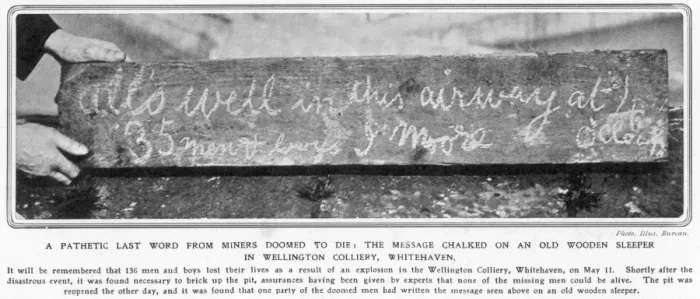 all's well in this airway at 4
35 men & boys J Moore o'clock
Photo. Illus. Bureau.
A PATHETIC LAST WORD FROM MINERS DOOMED TO DIE: THE MESSAGE CHALKED ON AN OLD WOODEN SLEEPER
IN WELLINGTON COLLIERY, WHITEHAVEN.
It will be remembered that 136 men and boys lost their lives as a result of an explosion in the Wellington Colliery, Whitehaven, on May 11. Shortly after the
disastrous event, it was found necessary to brick up the pit, assurances having been given by experts that none of the missing men could be alive. The pit was
reopened the other day, and it was found that one party of the doomed men had written the message seen above on an old wooden sleeper.